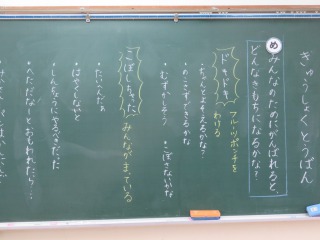 きゅうしょく とうばん
め
みんなのためにがんばれると、
どんなきもちになるかな?
フルーツポンチを
わける
ドキドキ
・ちゃんとよそえるかな?
・のこさずできるかな
・むずかしそう ・こぼさないかな
こぼしちゃった
みんながまっている
・たいへんだぁ
・はやくしないと
・しんちょうにやるべきだった
・へただなーとおもわれたら…